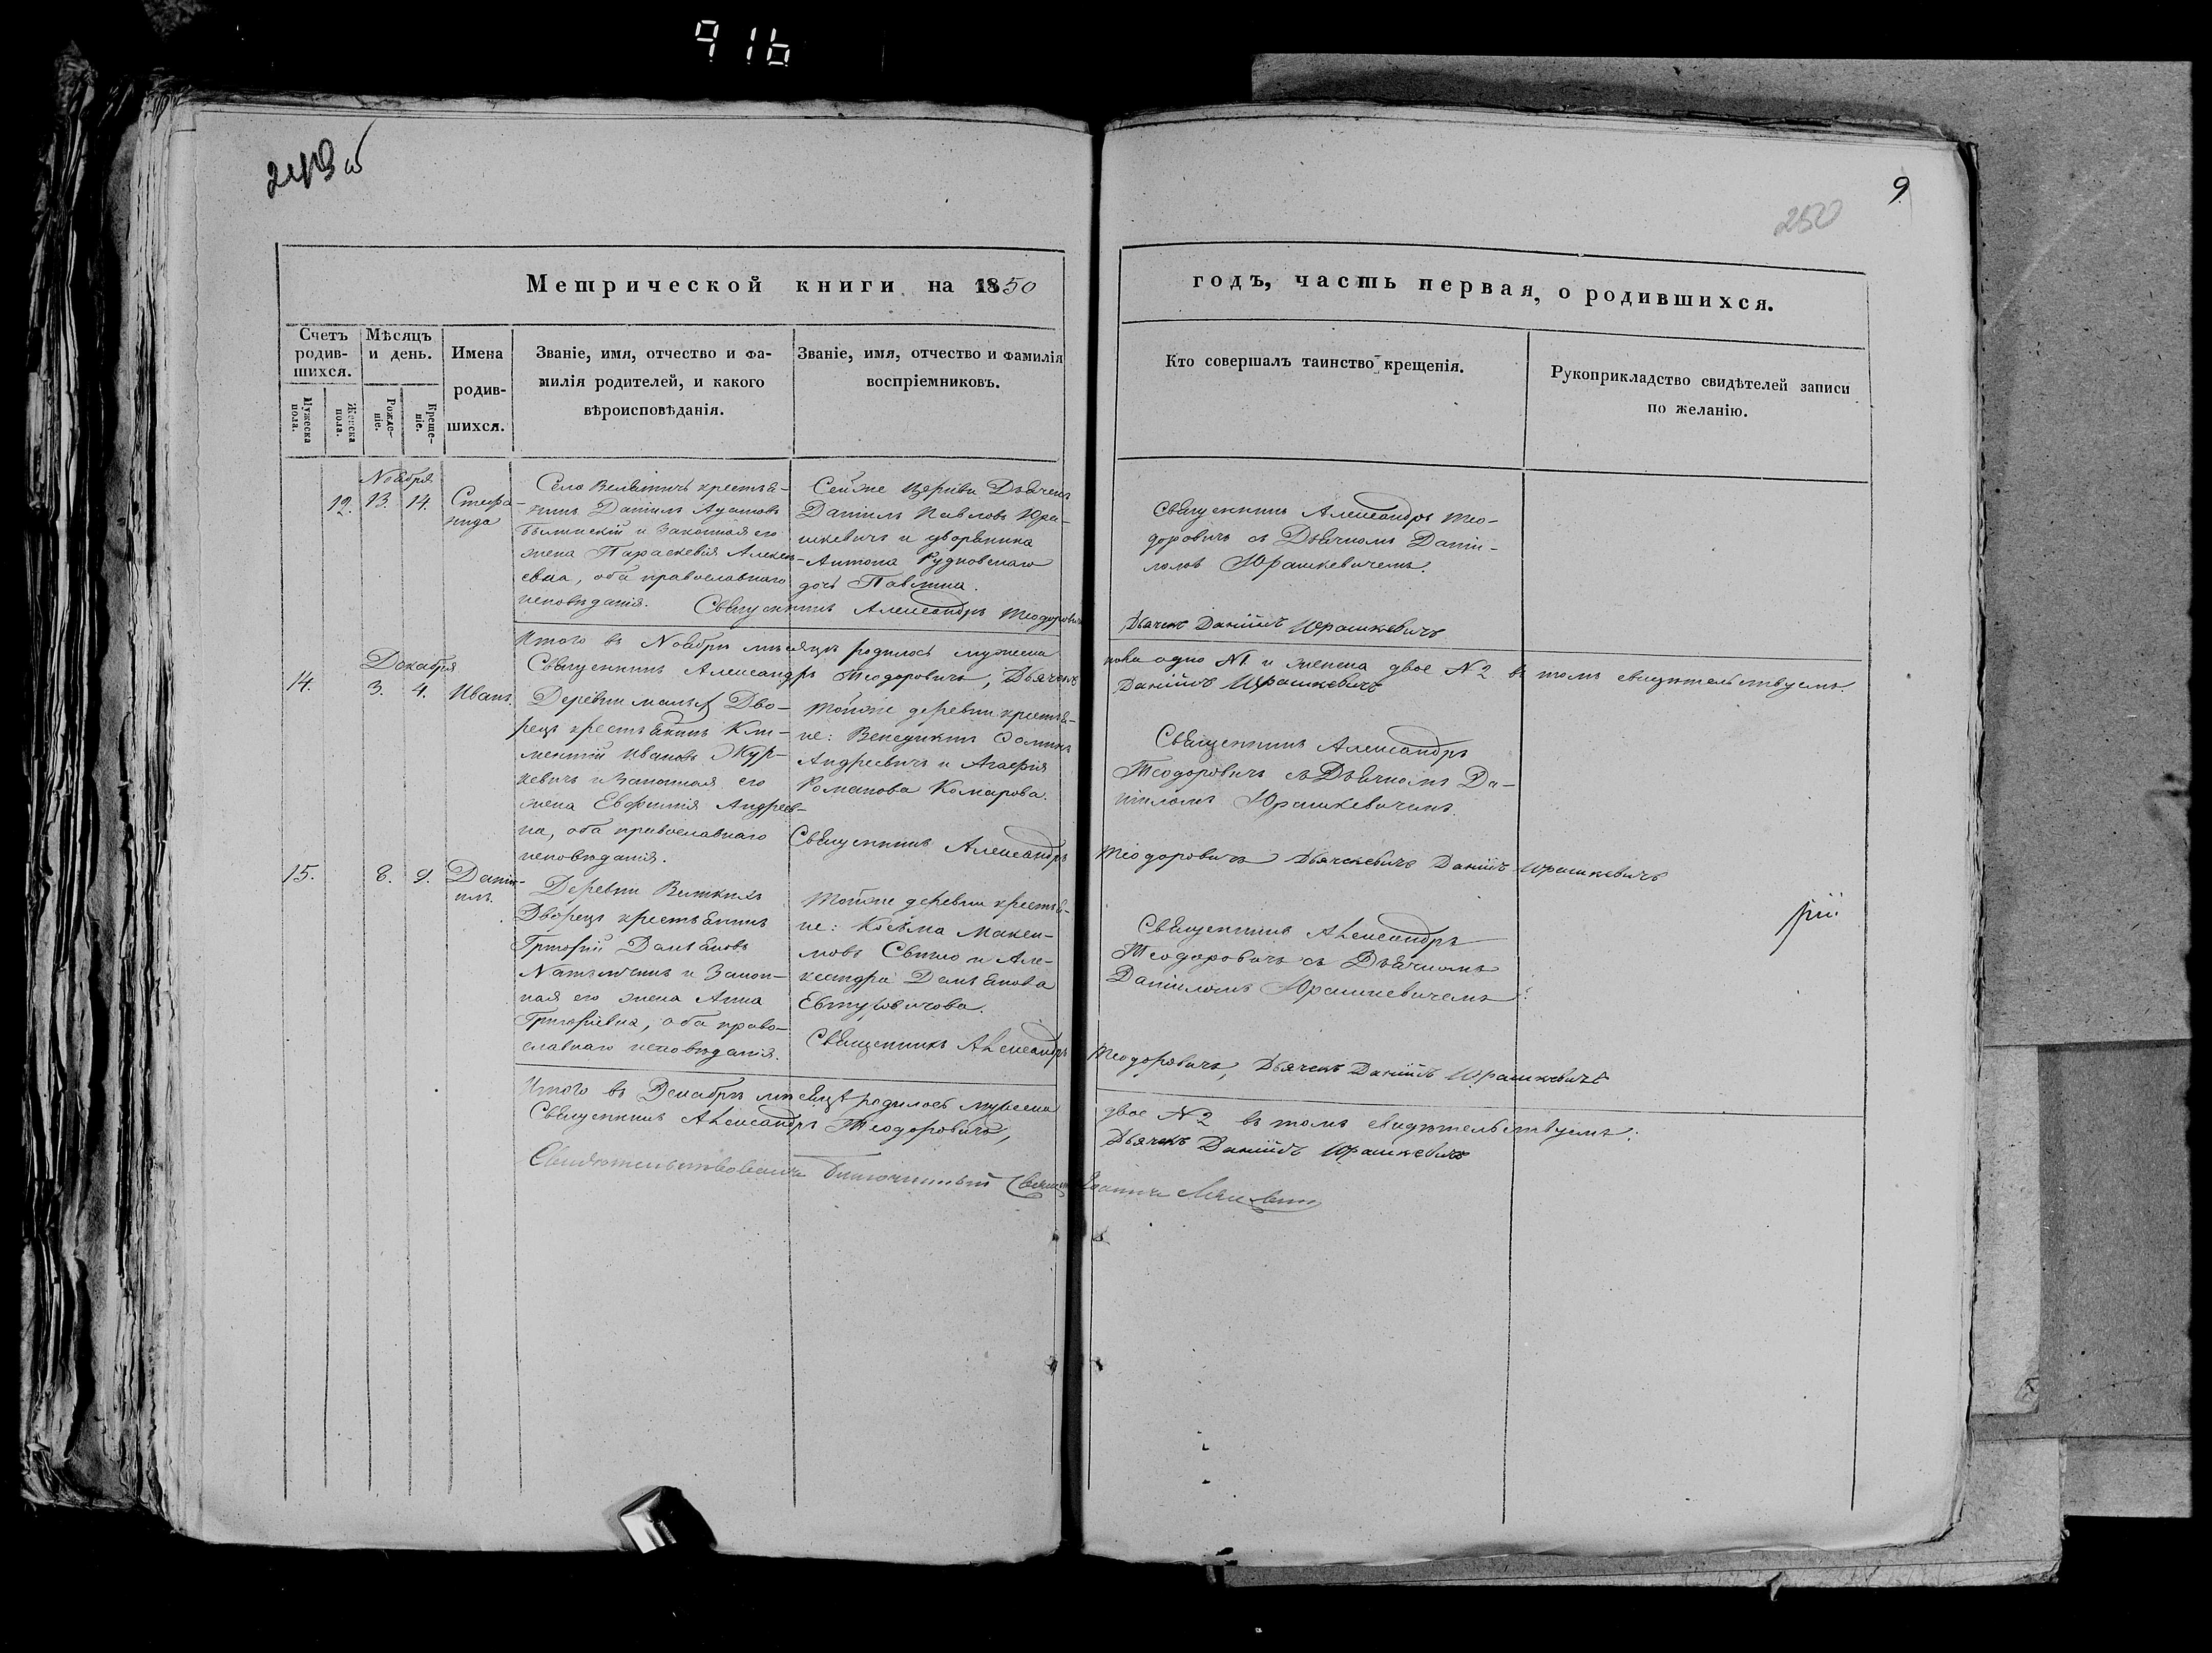 916
250
9
Метрической книги на 1850
годъ, часть первая, о родившихся.
Счетъ родив-шихся.
Мужеска пола.
Женска пола.
Мѣсяцъ и день.
Рожде-ніе.
Креще-ніе.
Имена
родив-
шихся.
Званіе, имя, отчество и фа-
милія родителей, и какого
вѣроисповѣданія.
Званіе, имя, отчество и фамилія
воспріемниковъ.
Кто совершалъ таинство крещенія.
Рукоприкладство свидѣтелей записи
по желанію.
Ноября
12. 13. 14.
Стефа-
нида
Село Велятичъ крестья-
нинъ Даніилъ Адамовъ
и законная его
жена Параскевія Алексѣ-
евна, оба православнаго
исповѣданія.
Сейже Церкви Дьячекъ
Даніилъ Павловъ Юра-
шкевичъ и дворянина
Антона Рудковскаго
дочь Павлина.
Священникъ Александръ Теодоровичъ
Священникъ Александръ Тео-
доровичъ съ Дьячкомъ Даніи-
ломъ Юрашкевичемъ.
Дьячекъ Даніилъ Юрашкевичъ
Итого въ Ноябрѣ мѣсяцѣ родилось мужеска
пола одно №1 и женска двое №2 въ томъ свидѣтельствуемъ.
Священникъ Александръ Теодоровичъ, Дьячекъ
Даніилъ Юрашкевичъ
Декабря
14. 3. 4. Иванъ.
Деревни малый Дво-
рецъ крестьянинъ Кли-
ментій Ивановъ Жур-
кевичъ и законная его
жена Евфимія Андреев-
на, оба православнаго
исповѣданія.
Тойже деревни крестья-
не: Венедиктъ Фоминъ
Андреевичъ и Агафія
Романова Комарова.
Священникъ Александръ
Священникъ Александръ
Теодоровичъ съ Дьячкомъ Да-
ніиломъ Юрашкевичемъ.
Теодоровичъ Даніилъ Юрашкевичъ
15. 8. 9. Дані-
илъ.
Деревни
Дворецъ крестьянинъ
Григорій Демьяновъ
и закон-
ная его жена Анна
Григоріевна, оба право-
славнаго исповѣданія.
Тойже деревни крестья-
не: Косьма Макси-
мовъ Свитло и Але-
ксандра Демьянова
Евтуховичова.
Священникъ Александръ
Священникъ Александръ
Теодоровичъ съ Дьячкомъ
Даніиломъ Юрашкевичемъ:
Теодоровичъ, Дьячекъ Даніилъ Юрашкевичъ
Итого въ Декабрѣ мѣсяцѣ родилось мужеска
двое №2 въ томъ свидѣтельствуемъ:
Священникъ Александръ Теодоровичъ,
Дьячекъ Даніилъ Юрашкевичъ
Свидѣтельствовалъ Благочинный